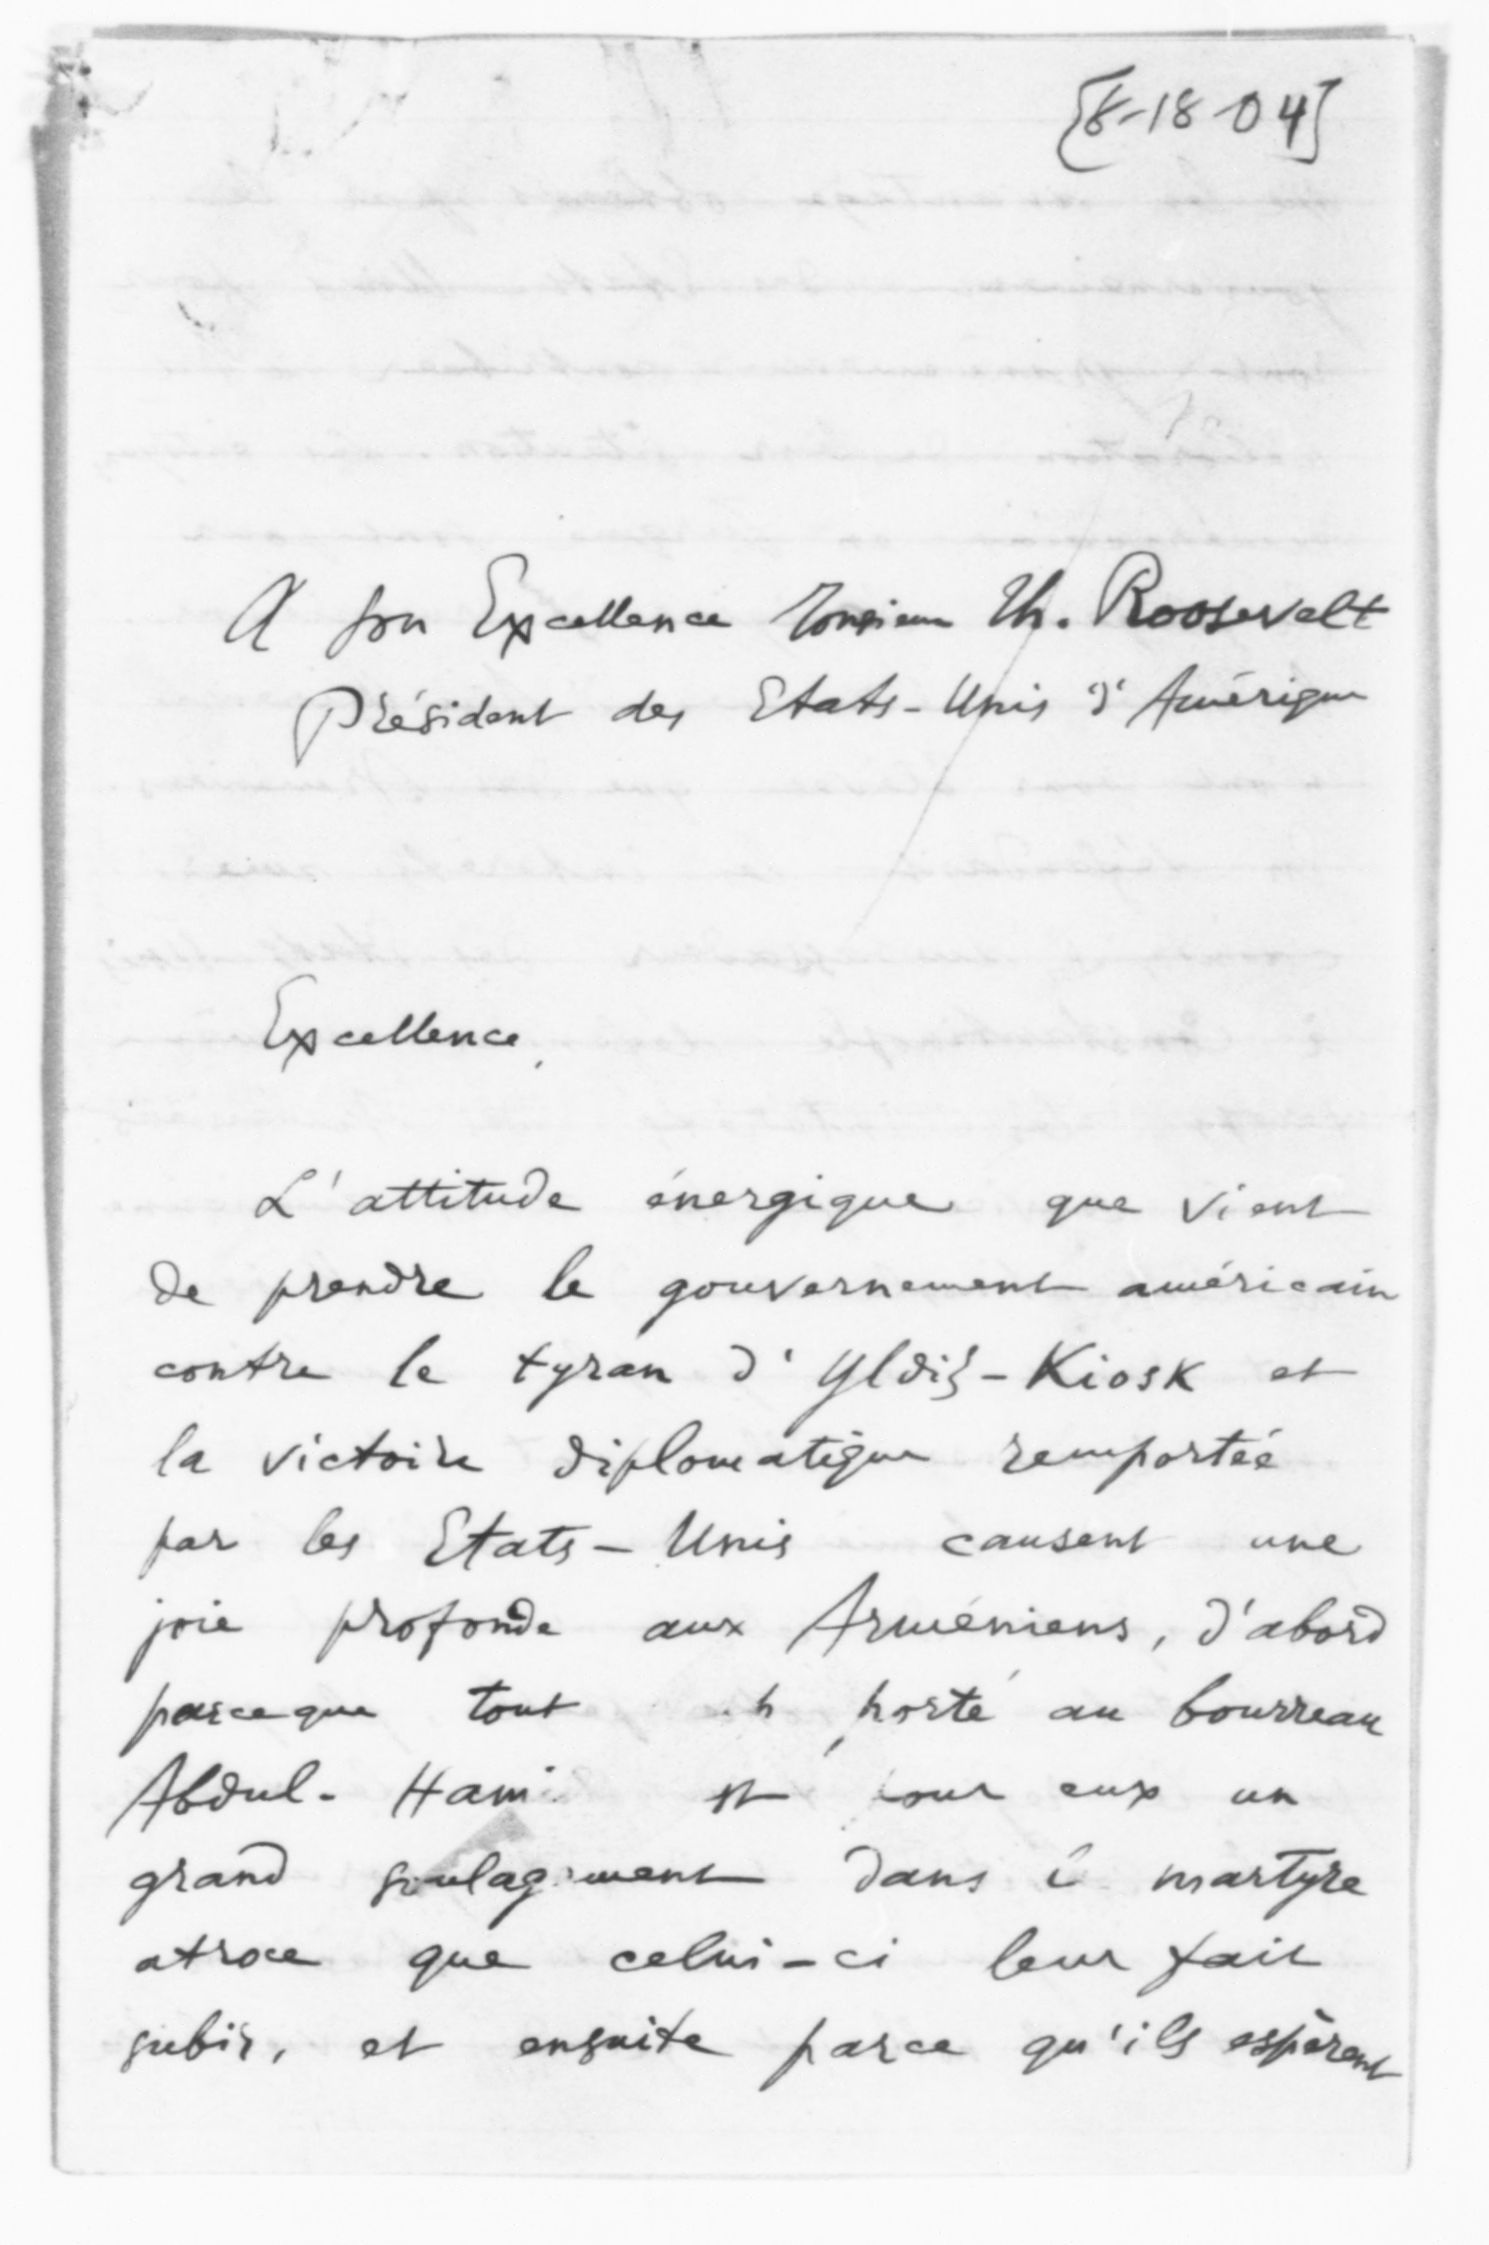 [8-18-04]
A son Excellence Monsieur Th. Roosevelt
Président des Etats-Unis d'Amérique
Excellence,
L'attitude énergique que vient
de prendre le gouvernement américain
contre le tyran d'Yldiz-Kiosk et
la victoire diplomatique remportée
par les Etats-Unis causent une
joie profonde aux Arméniens, d'abord
parceque tout porté au bourreau
Abdul-Hami est pour eux un
grand soulagement dans martyre
atroce que celui-ci leur fait
subir, et ensuite parce qu'ils espèrent